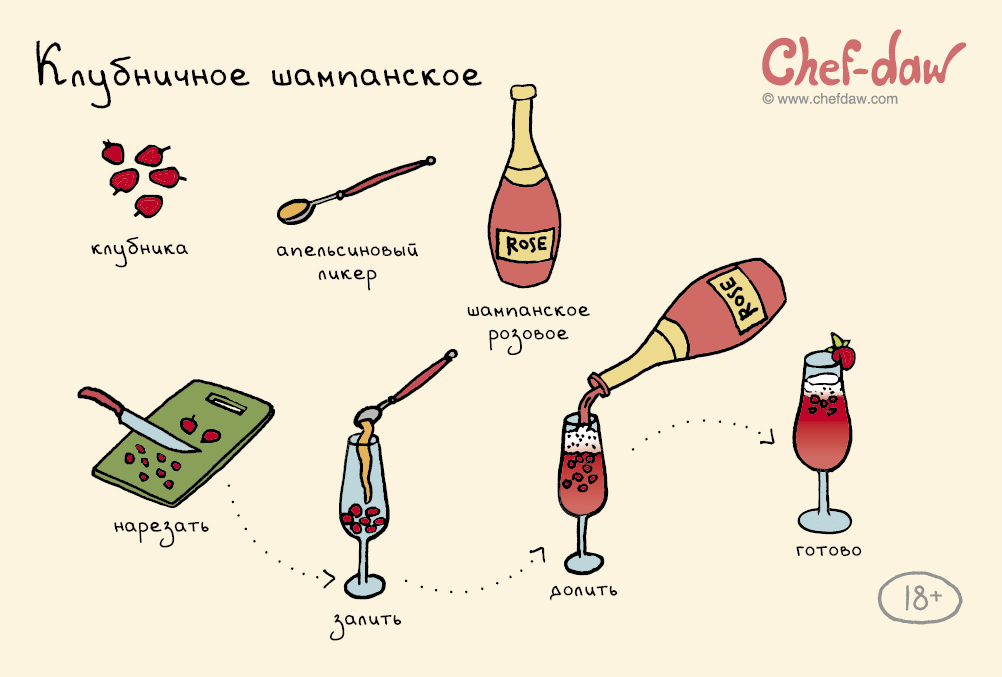 Клубничное шампанское
Chef-daw
© www.chefdaw.com
клубника
апельсиновый
ликер
ROSE
шампанское
розовое
ROSE
нарезать
залить
долить
готово
18+